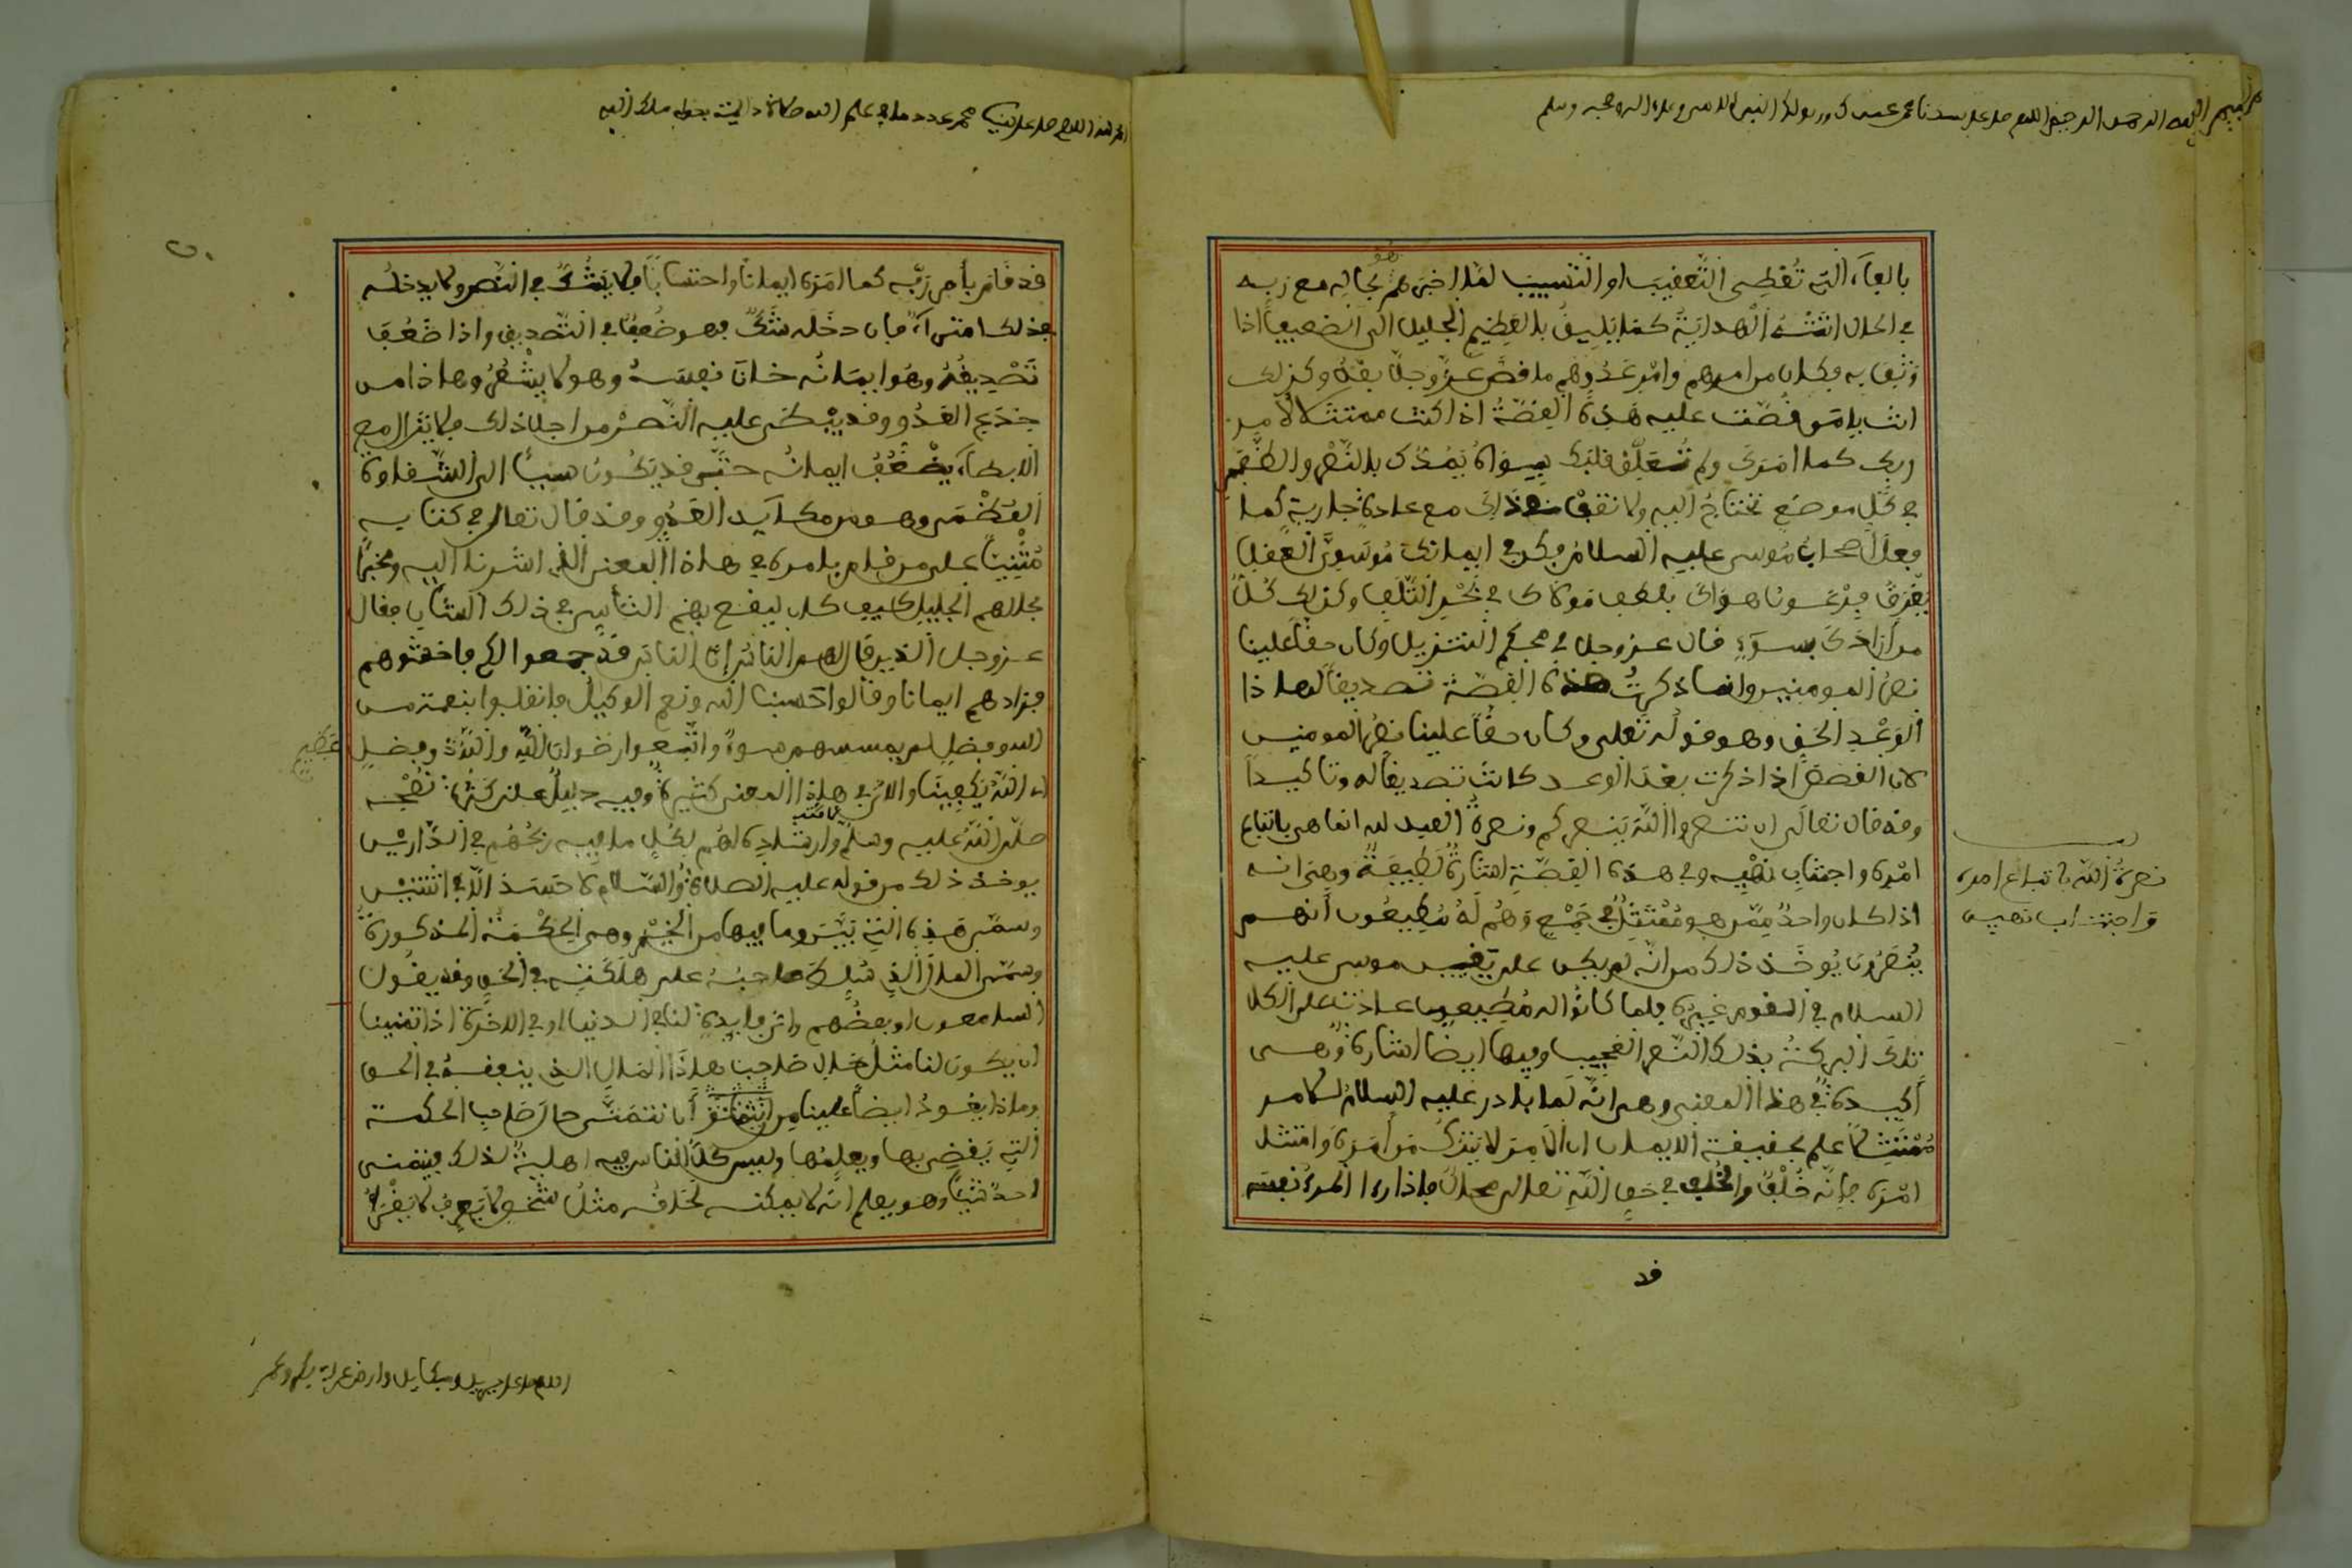 بالفاء التي تعطي التعقيب او التسبيب لما اخبرهم بحاله مع ربه
في الحال اتته الهداية كما يليق بالعظيم الجليل الى الضعيف اذا
وثق به فكان من امرهم وامر عدوهم ما قص عز وجل بعد وكذلك
انت يا من قصت عليه هذه القصة اذا كنت ممتثلا لامر
ربك كما امرك ولم تعلق قلبك بسواه يمدك بالنصر والظفر
في كل موضع تحتاج اليه ولا تقف مع عادة جارية كما
فعل اصحاب موسى عليه السلام فكن في ايمانك موسوي العقل
يغرق فرعون هواك بلطف مولاك في بحر التلف وكذلك كل
من ارادك بسوء قال عز وجل في محكم التنزيل وكان حقا علينا
نصر المومنين وانما ذكرت هذه القصة تصديقا لهاذا
الوعد الحق وهو قوله تعلى وكان حقا علينا نصر المومنين
لان القصة اذا ذكرت بعد الوعد كانت تصديقا له وتاكيدا
وقد قال تعالى ان تنصروا الله ينصركم ونصرة العبد لله انما هي باتباع
امره واجتناب نهيه وفي هذه القصة اشارة لطيفة وهي انه
اذا كان واحد ممن هو ممتثل في جمع وهم له مطيعون انهم
ينصرون يوخذ ذلك من انه لم يكن على يقين موسى عليه
السلام في القوم غيره فلما كانوا له مطيعين عادت على الكل
تلك البركة بذلك النصر العجيب وفيها ايضا اشارة وهي
اكيدة في هذا المعنى وهي انه لما بادر عليه السلام للامر
ممتثلا علم بحقيقة الايمان ان الآمر لا يترك من امره وامتثل
امره فانه خلف والخلف في حق الله تعالى محال فاذا راى المرء نفسه
قد
نصرة الله باتباع امره
واجتناب نهيه
قد قام بامر ربه كما امره ايمانا واحتسابا فلا يشك في النصر ولا يدخله
في ذلك امتراء فان دخله شك فهو ضعف في التصديق واذا ضعف
تصديقه وهو ايمانه خان نفسه وهو لا يشعر وهاذا من
خدع العدو وقد يبطئ عليه النصر من اجل ذلك فلا يزال مع
الابطاء يضعف ايمانه حتى قد يكون سببا الى الشقاوة
العظمى وهو من مكايد العدو وقد قال تعالى في كتابه
مثنيا على من قام بامره في هاذا المعنى الذي اشرنا اليه ومخبرا
بحالهم الجليل كيف كان ليقع بهم التاسي في ذلك الشان فقال
عز وجل الذين قال لهم الناس ان الناس قد جمعوا لكم فاخشوهم
فزادهم ايمانا وقالوا حسبنا الله ونعم الوكيل فانقلبوا بنعمة من
الله وفضل لم يمسسهم سوء واتبعوا رضوان الله والله ذو فضل
عظيم
صلى الله عليه وسلم وارشاده لهم لكل ما فيه ربحهم في الدارين
يوخذ ذلك من قوله عليه الصلاة والسلام لا حسد الا في اثنتين
وسمى هذه التي بين وما فيها من الخير وهي الحكمة المذكورة
وسمى المال الذي سلط صاحبه على هلكته في الحق وقد يقول
السامعون او بعضهم واي فايدة لنا في الدنيا او في الاخرة اذا تمنينا
ان يكون لنا مثل حال صاحب هاذا المال الذي ينفقه في الحق
وماذا يعود ايضا علينا من ان نتمنى حال صاحب الحكمة
التي يقضي بها ويعلمها وليس كل الناس فيه اهلية لذلك فيتمنى
احد شيئا وهو يعلم انه لا يمكنه لحاقه مثل شخص لا يعرف لا يقرا